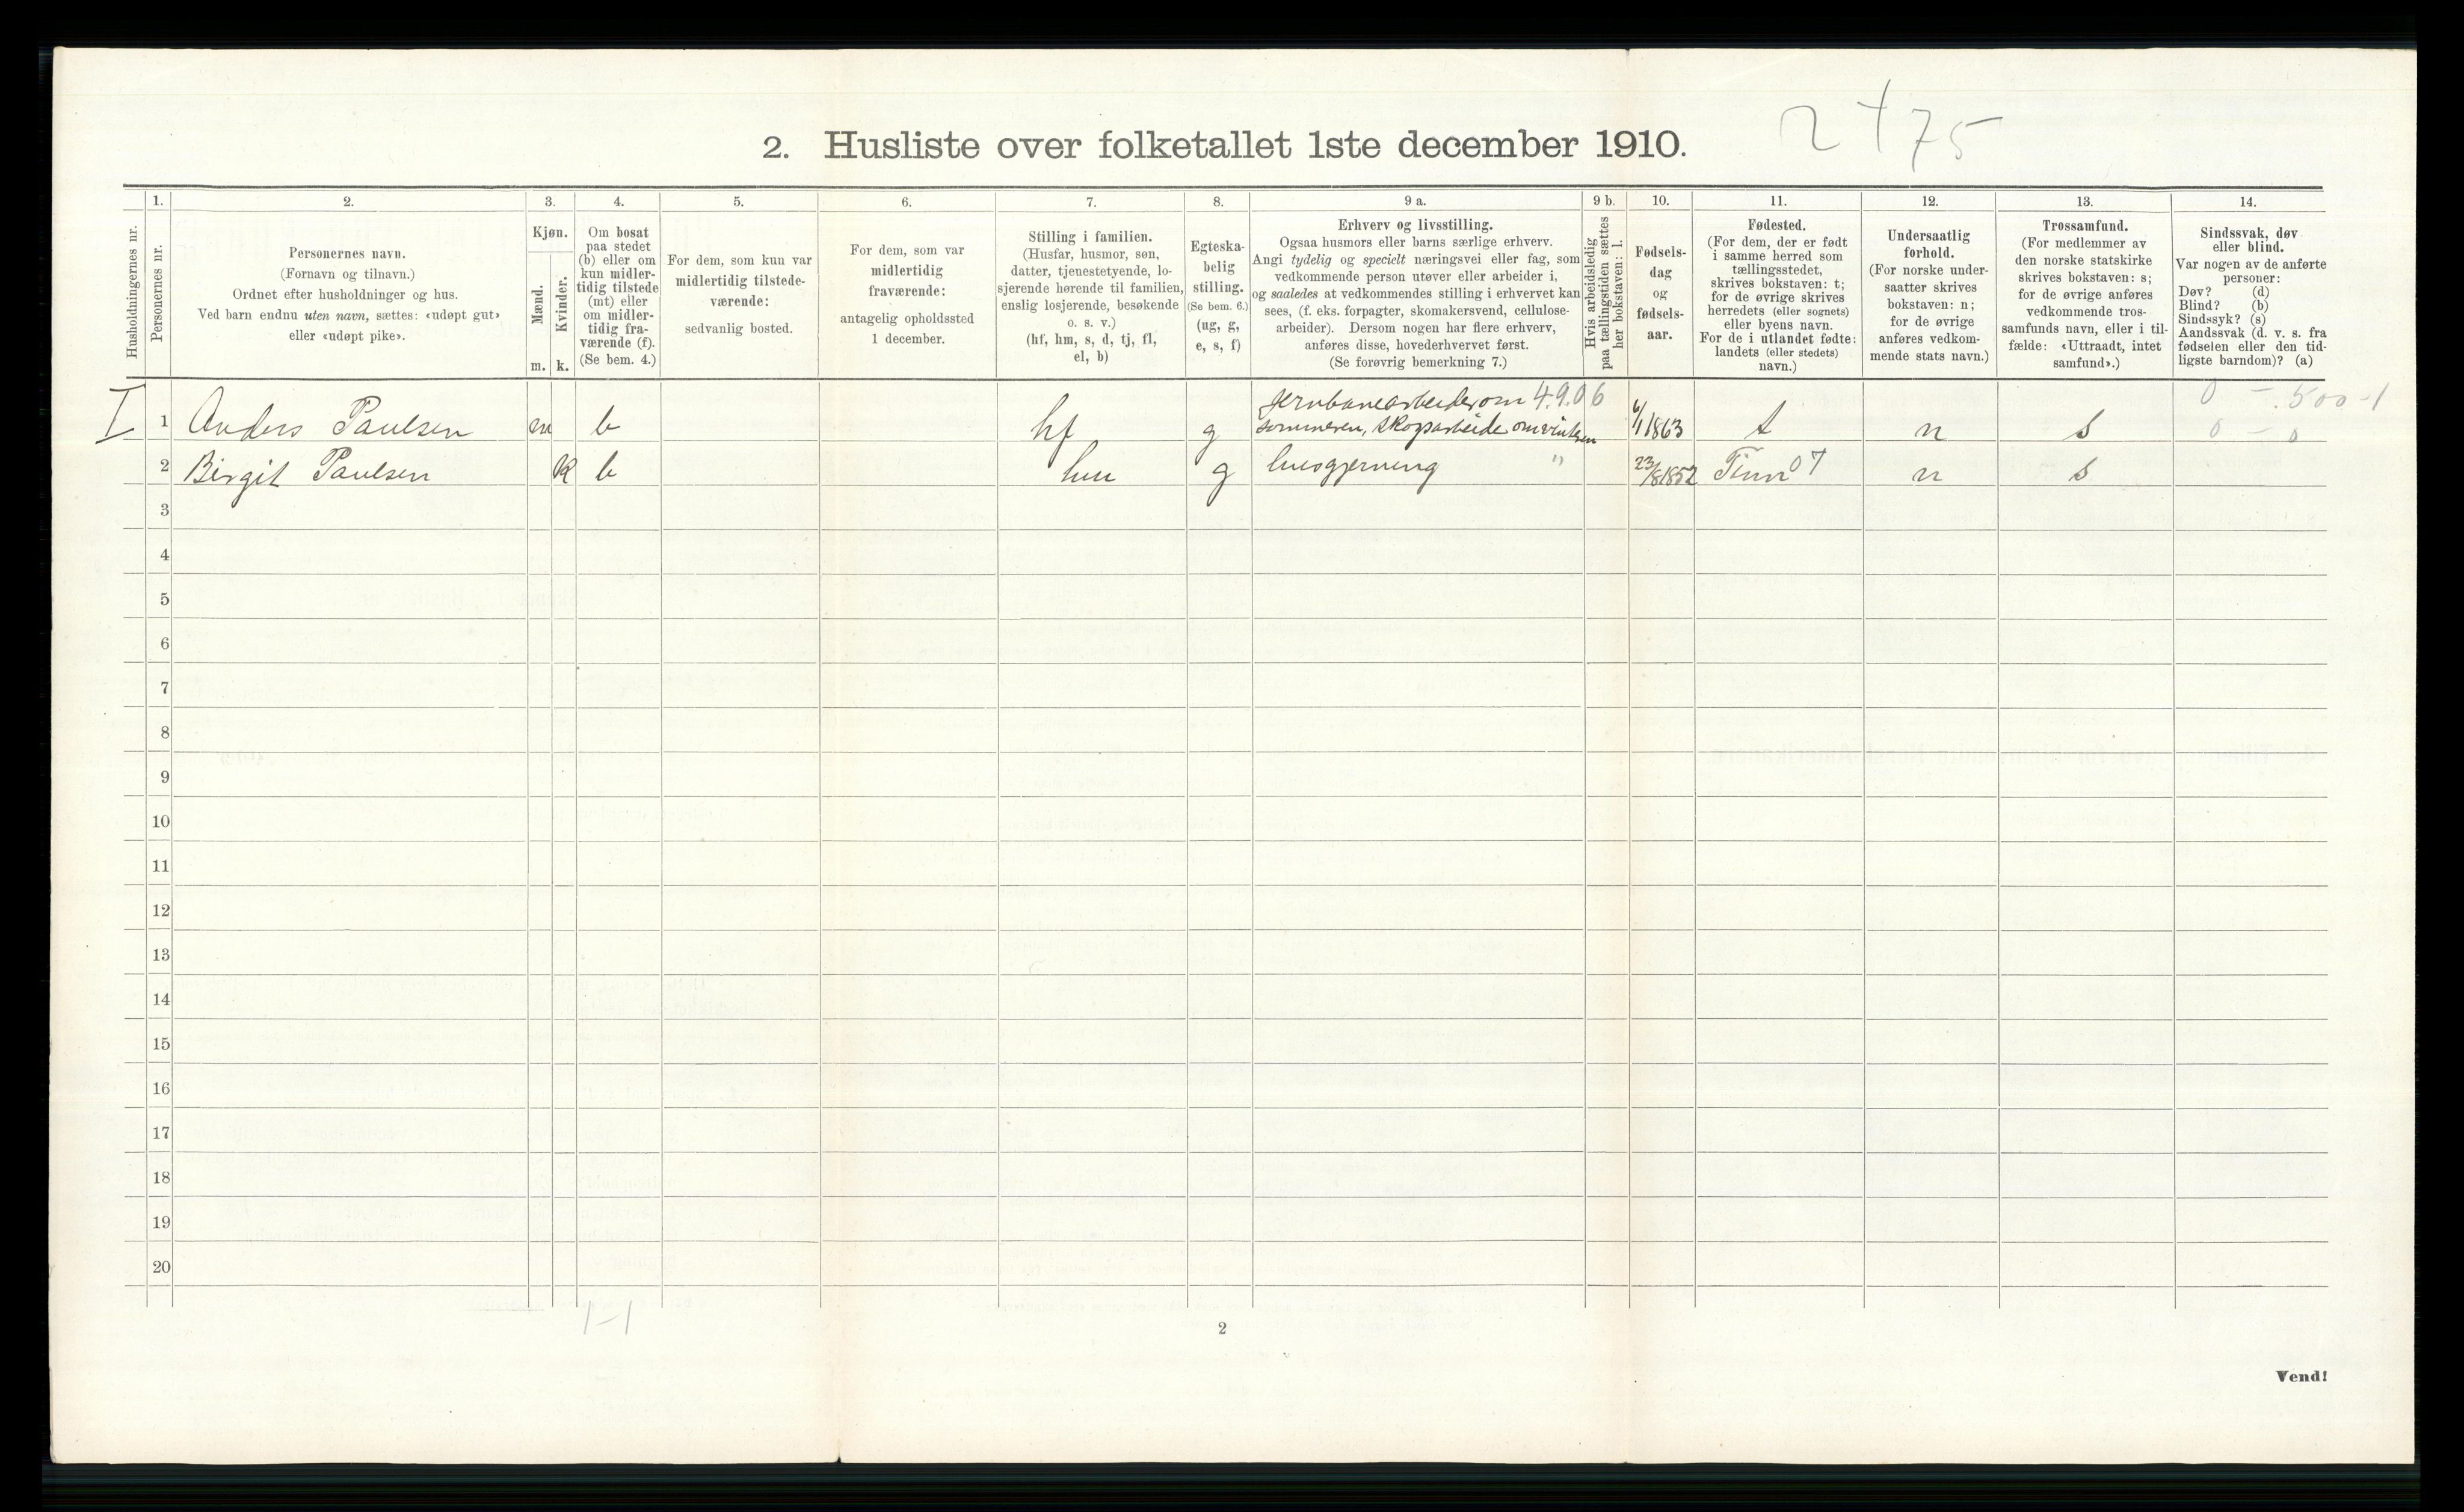 2475
2. Husliste over folketallet 1ste december 1910.
Husholdningernes nr.
1.
Personernes nr.
2.
Personernes navn.
(Fornavn og tilnavn.)
Ordnet efter husholdninger og hus.
Ved barn endnu uten navn, sættes: «udøpt gut»
eller «udøpt pike».
3.
Kjøn.
Mænd.
Kvinder.
m. k.
4.
Om bosat
paa stedet
(b) eller om
kun midler-
tidig tilstede
(mt) eller
om midler-
tidig fra-
værende (f).
(Se bem. 4.)
5.
For dem, som kun var
midlertidig tilstede-
værende:
sedvanlig bosted.
6.
For dem, som var
midlertidig
fraværende:
antagelig opholdssted
1 december.
7.
Stilling i familien.
(Husfar, husmor, søn,
datter, tjenestetyende, lo-
sjerende hørende til familien,
enslig losjerende, besøkende
o. s. v.)
(hf, hm, s, d, tj, fl,
el, b)
8.
Egteska-
belig
stilling.
(Se bem. 6.)
(ug, g,
e, s, f)
9 a.
Erhverv og livsstilling.
Ogsaa husmors eller barns særlige erhverv.
Angi tydelig og specielt næringsvei eller fag, som
vedkommende person utøver eller arbeider i,
og saaledes at vedkommendes stilling i erhvervet kan
sees, (f. eks. forpagter, skomakersvend, cellulose-
arbeider). Dersom nogen har flere erhverv,
anføres disse, hovederhvervet først.
(Se forøvrig bemerkning 7.)
9 b.
Hvis arbeidsledig
paa tællingstiden sættes
her bokstaven: l.
10.
Fødsels-
dag
og
fødsels-
aar.
11.
Fødested.
(For dem, der er født
i samme herred som
tællingsstedet,
skrives bokstaven: t;
for de øvrige skrives
herredets (eller sognets)
eller byens navn.
For de i utlandet fødte:
landets (eller stedets)
navn.)
12.
Undersaatlig
forhold.
(For norske under-
saatter skrives
bokstaven: n;
for de øvrige
anføres vedkom-
mende stats navn.)
13.
Trossamfund.
(For medlemmer av
den norske statskirke
skrives bokstaven: s;
for de øvrige anføres
vedkommende tros-
samfunds navn, eller i til-
fælde: «Uttraadt, intet
samfund».)
14.
Sindssvak, døv
eller blind.
Var nogen av de anførte
personer:
Døv? (d)
Blind? (b)
Sindssyk? (s)
Aandssvak (d. v. s. fra
fødselen eller den tid-
ligste barndom)? (a)
Jernbanearbeider om 4.9.06
0 - .500-1
I 1 Anders Paulsen m b hf g sommeren, skogsarbeide om vinteren 6/1 1863 t n s 0 - 0
2 Birgit Paulsen k b hm g husgjerning " 23/8 1852 Tinn 07 n s
3
4
5
6
7
8
9
10
11
12
13
14
15
16
17
18
19
20
1-1
2
Vend!